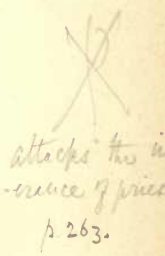 attacks the in
-erance of pries
p. 263.